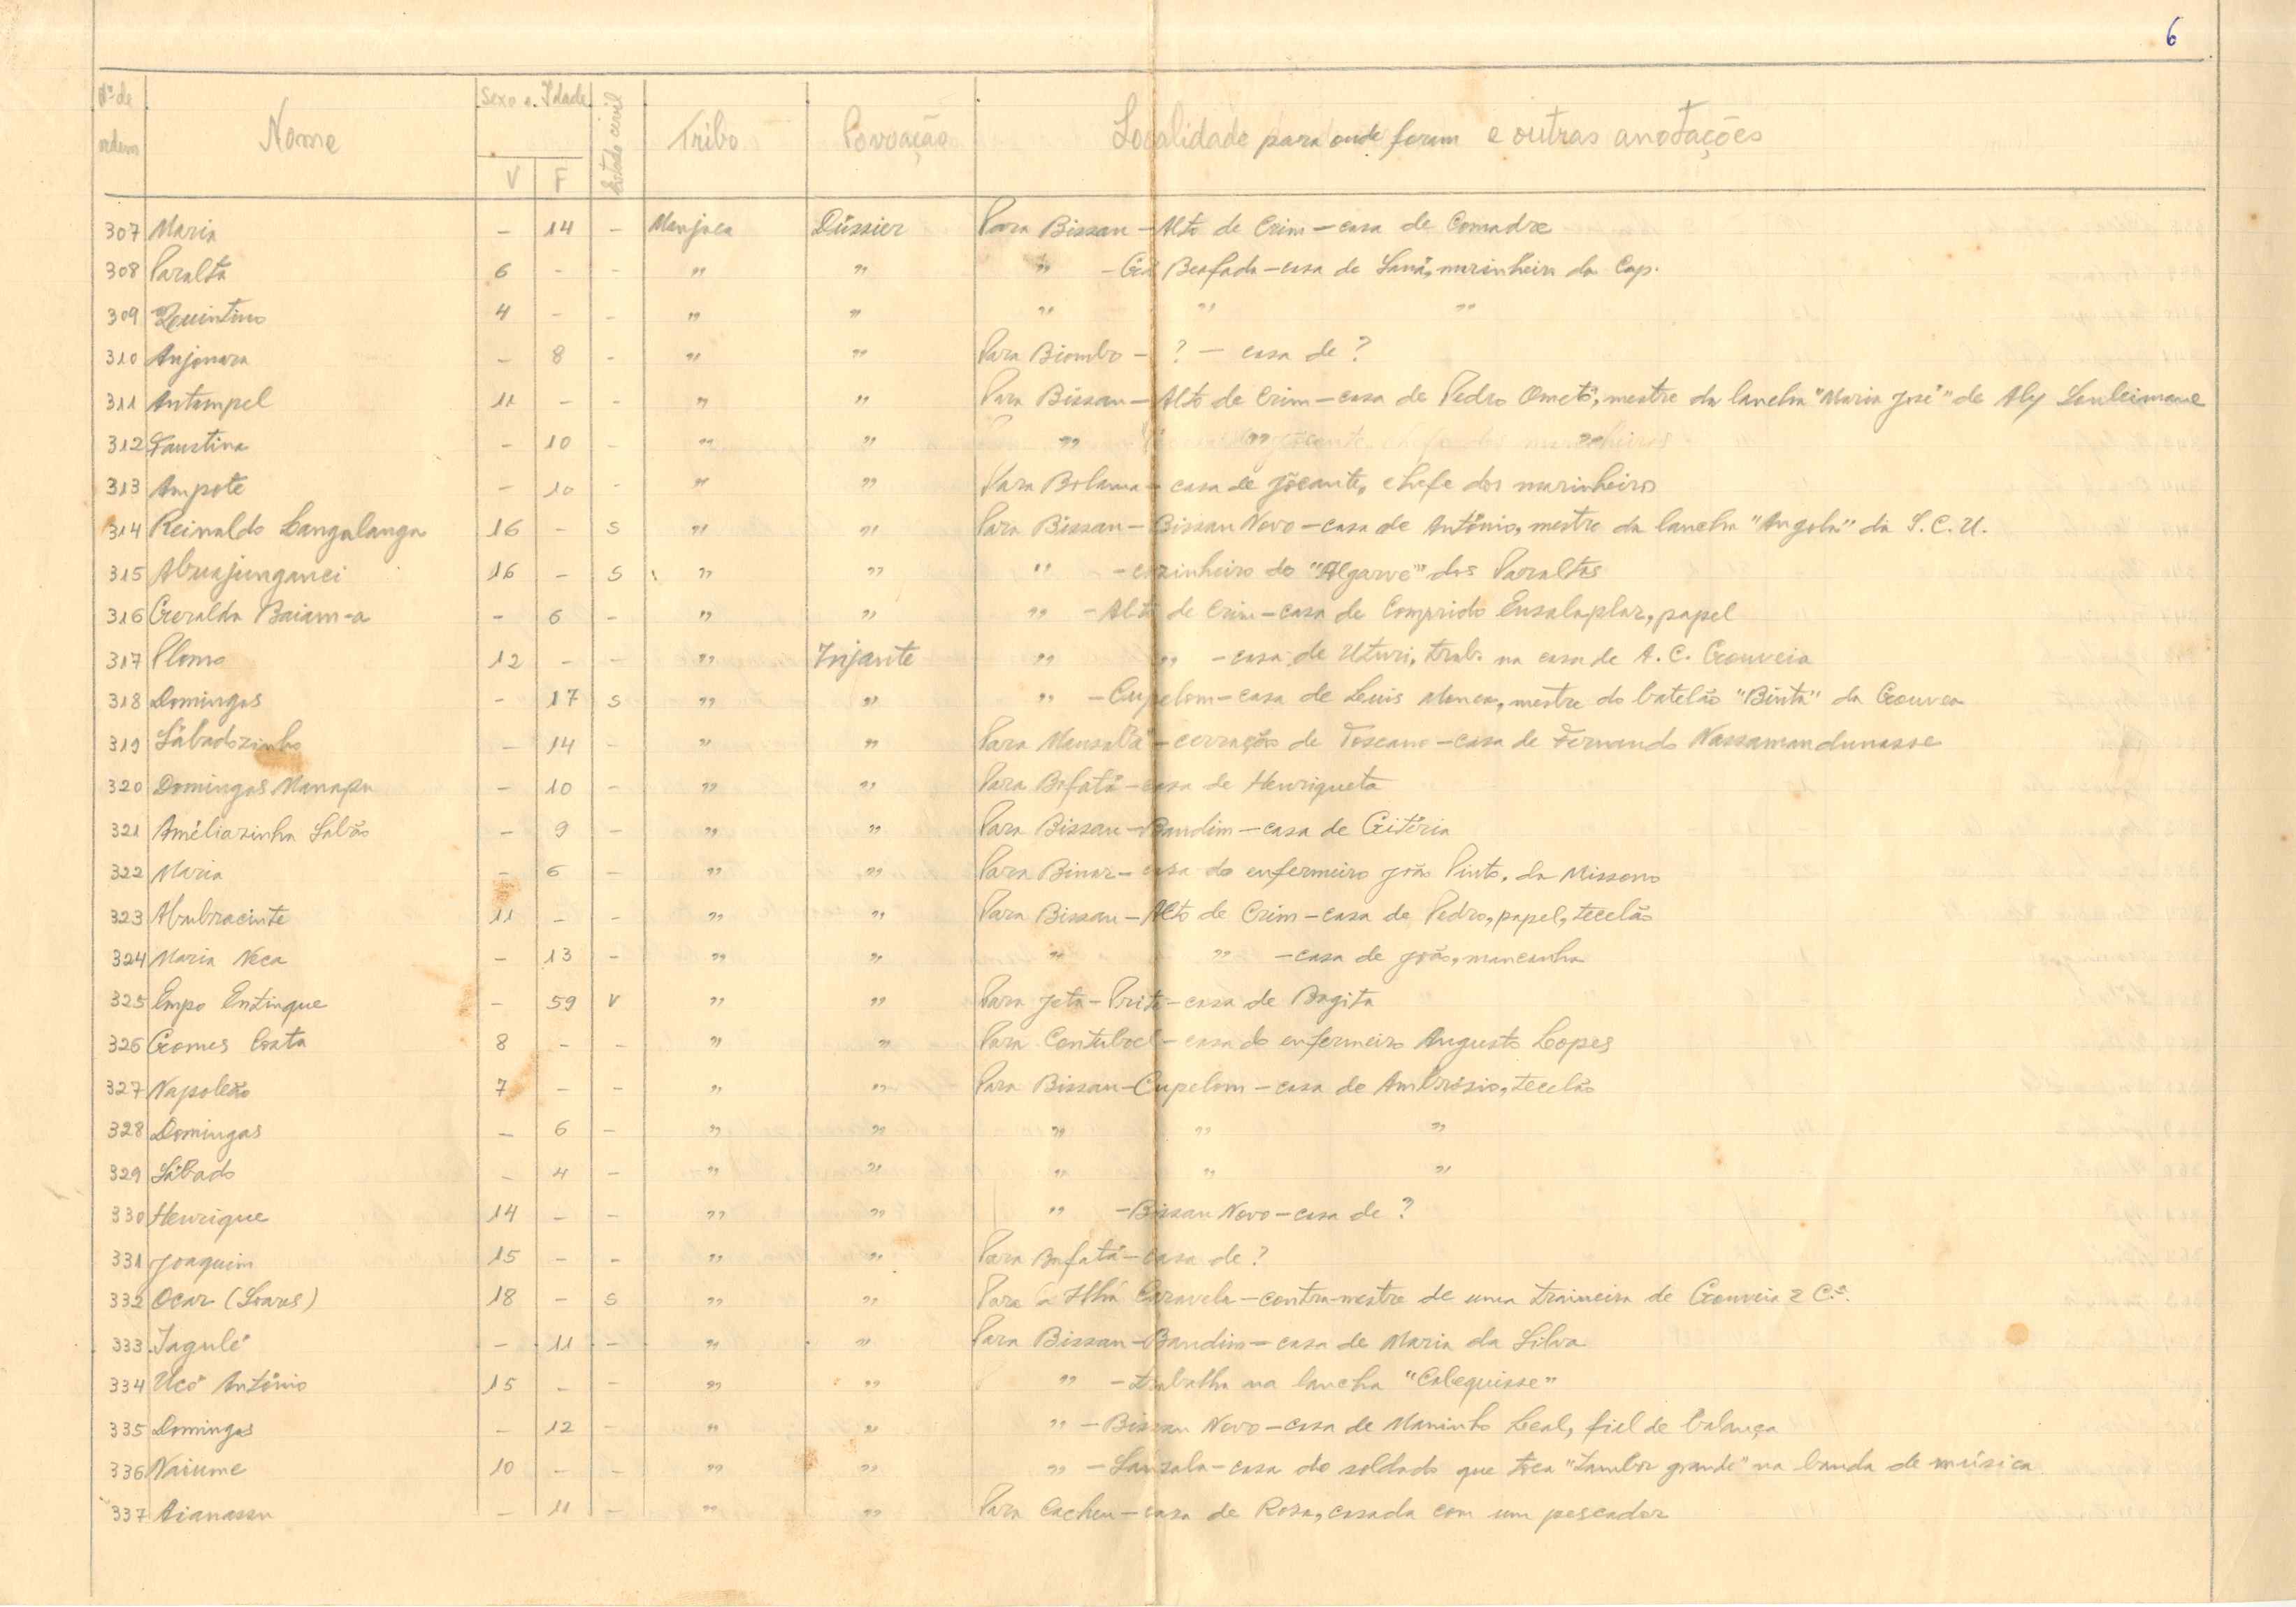 6
Nº de ordem Nome Sexo e Idade V F Estado civil Tribo Povoação Localidade para onde foram e outras anotações
307 Maria - 14 - Manjaca Dússier Para Bissau - Alto de Crim - casa de Comadre
308 Paralta 6 - - " " " - Gã Beafada - casa de Sanã, marinheiro da Cap.
309 Quintino 4 - - " " " " "
310 Anjonara - 8 - " " Para Biombo - ? - casa de ?
311 Antempel 11 - - " " Para Bissau - Alto de Crim - casa de Pedro Ometó, mestre da lancha "Maria José" de Aly Souleimane
312 Faustina - 10 - " " " " "
313 Ampote - 10 - " " Para Bolama - casa de Jõcante, chefe dos marinheiros
314 Reinaldo Langalanga 16 - S " " Para Bissau - Bissau Novo - casa de António, mestre da lancha "Angola" da S.C.U.
315 Abuajunganci 16 - S " " " - cozinheiro do "Algarve" dos Paraltas
316 Geralda Baiam-a - 6 - " " " - Alto de Crim - casa de Comprido Ensalaplar, papel
317 Plomo 12 - - " Injante " " - casa de Uturi, trab. na casa de A. C. Gouveia
318 Domingas - 17 S " " " - Cupelom - casa de Luis Monca, mestre do batelão "Binta" da Gouvea
319 Sábadozinho - 14 - " " Para Mansabá - cerração de Toscano - casa de Fernando Nassamandunasse
320 Domingas Manapu - 10 - " " Para Bafatá - casa de Henriqueta
321 Améliazinha Sabão - 9 - " " Para Bissau - Bandim - casa de Gitéria
322 Maria - 6 - " " Para Binar - casa do enfermeiro João Pinto, da Missono
323 Abubracinte 11 - - " " Para Bissau - Alto de Crim - casa de Pedro, papel, tecelão
324 Maria Neca - 13 - " " " " - casa de João, mancanha
325 Empo Entingue - 59 V " " Para Jeta - Prité - casa de Bagita
326 Gomes Costa 8 - - " " Para Contuboel - casa do enfermeiro Augusto Lopes
327 Napoleão 7 - - " " Para Bissau - Cupelom - casa de Ambrósio, tecelão
328 Domingas - 6 - " " " " "
329 Sábado - 4 - " " " " "
330 Henrique 14 - - " " " - Bissau Novo - casa de ?
331 Joaquim 15 - - " " Para Bafatá - casa de ?
332 Ocar (Soares) 18 - S " " Para a Ilha Caravela - contra-mestre de uma traineira de Gouveia e C.ª.
333 Jagulé - 11 - " " Para Bissau - Bandim - casa de Maria da Silva
334 Ucó António 15 - - " " " - trabalha na lancha "Cabequisse"
335 Domingas - 12 - " " " - Bissau Novo - casa de Maninho Leal, fiel de balança
336 Naiume 10 - - " " " - Sanzala - casa do soldado que toca "tambor grande" na banda de música
337 Aianassu - 11 - " " Para Cacheu - casa de Rosa, casada com um pescador